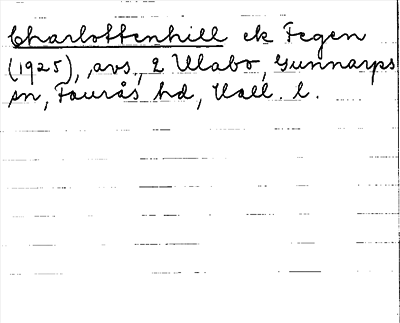 Charlottenhill ek Fegen
(1925), avs. 2 Ulabo, Gunnarps
sn, Faurås hd, Hall. l.